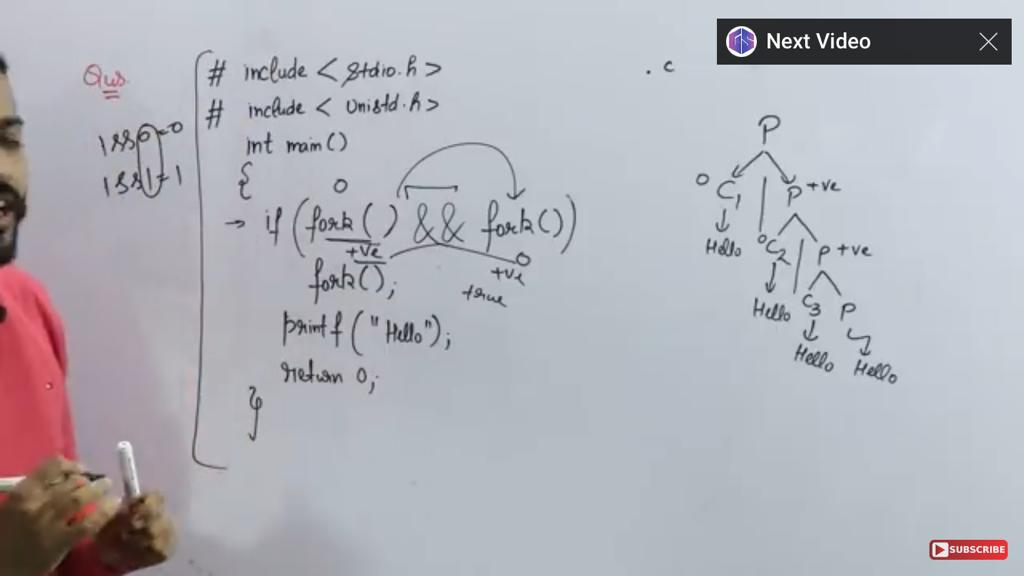 Next Video
Qus
# include <stdio.h>
# include < unistd.h>
int main()
{
0
→ if (fork() && fork())
+ve
0
+ve
true
fork();
printf ("Hello");
return 0;
}
. c
P
0 C1 P +ve
Hello 0 C2 P +ve
Hello C3 P
Hello Hello
SUBSCRIBE